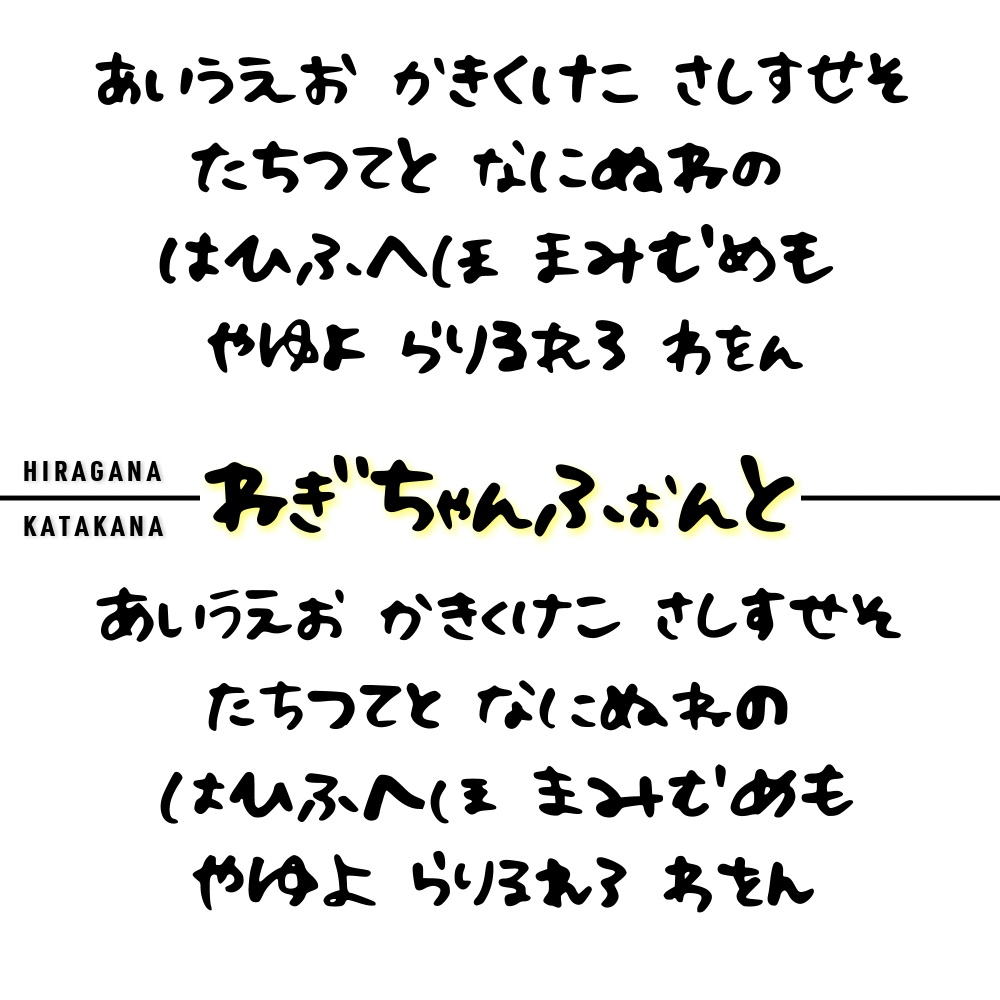 あいうえお かきくけこ さしすせそ
たちつてと なにぬねの
はひふへほ まみむめも
やゆよ らりるれろ わをん
HIRAGANA
ねぎちゃんふぉんと
KATAKANA
あいうえお かきくけこ さしすせそ
たちつてと なにぬねの
はひふへほ まみむめも
やゆよ らりるれろ わをん